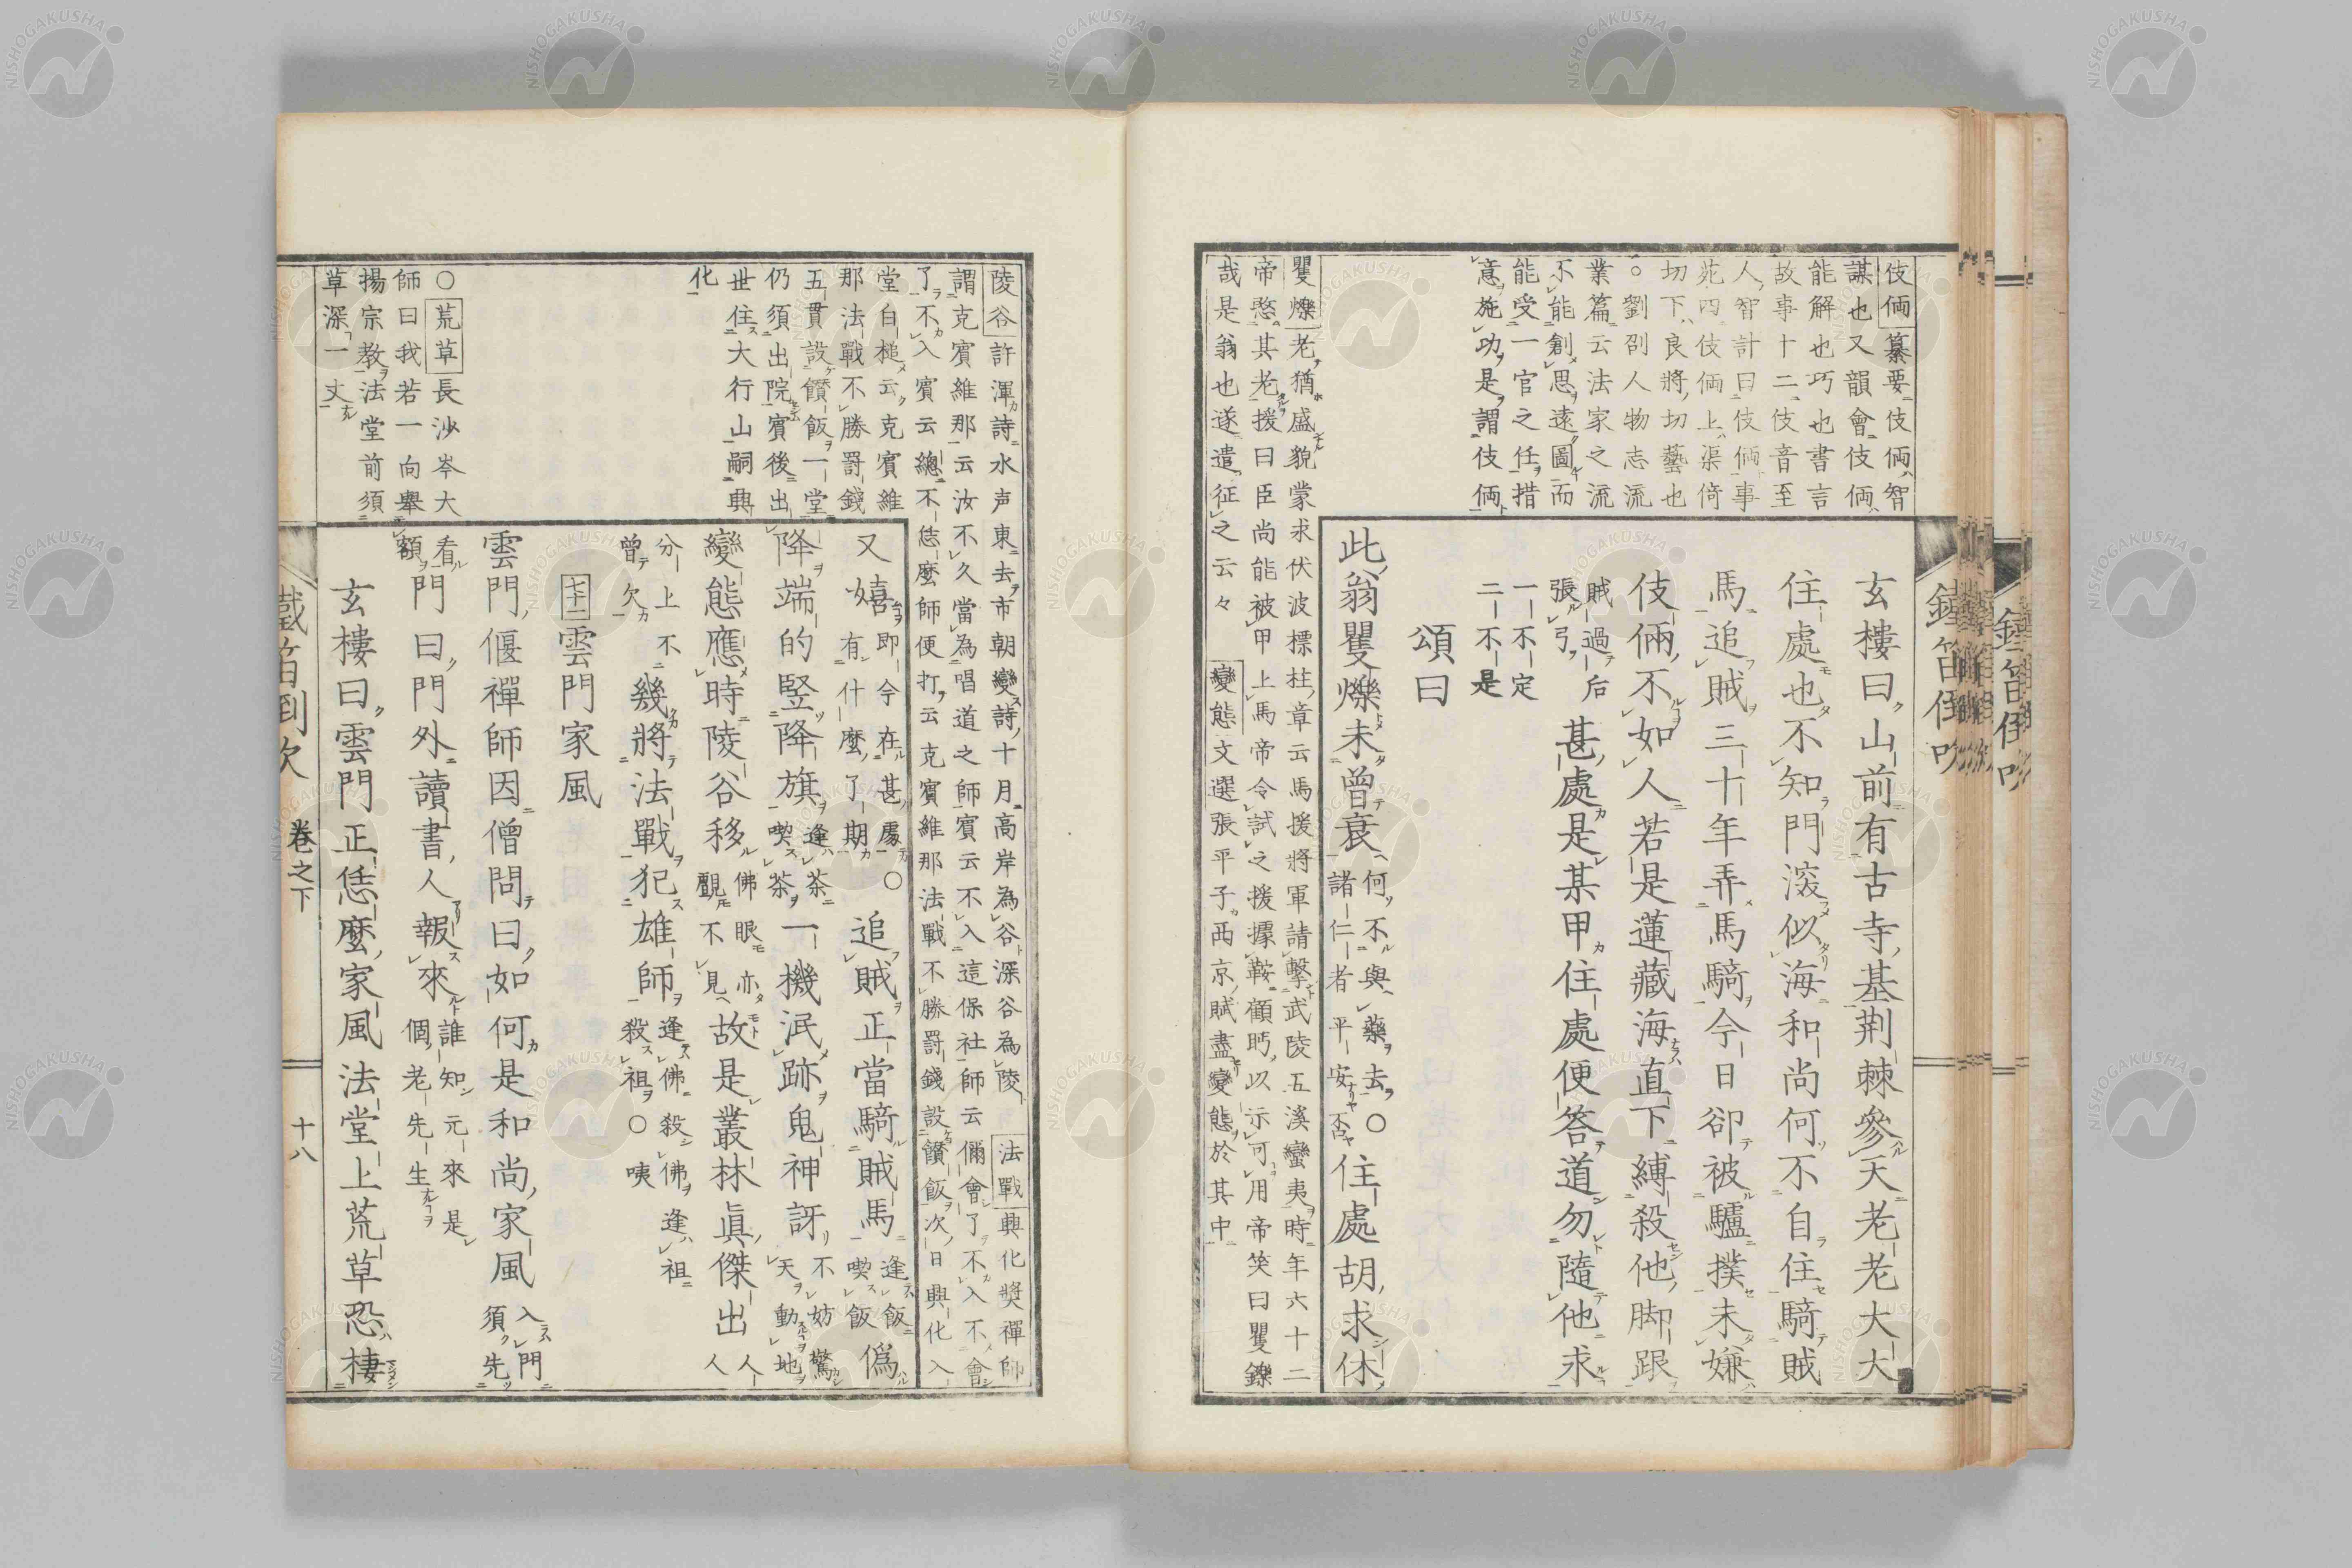 伎倆纂要伎倆智
謀也又韻會伎倆
能解也巧也書言
故事十二伎音至
人智計曰伎倆事
苑四伎倆上渠倚
切下良將切藝也
○劉劭人物志流
業篇云法家之流
不能創思遠圖而
能受一官之任措
意施功是謂伎倆
矍爍老猶盛貌蒙求伏波標柱章云馬援將軍請擊武陵五溪蠻夷時年六十二
帝愍其老援曰臣尚能被甲上馬帝令試之援據鞍顧眄以示可用帝笑曰矍鑠
哉是翁也遂遣征之云々 變態文選張平子西京賦盡變態於其中
玄樓曰山前有古寺基荆棘參天老老大大
住處也不知門滚似海和尚何不自住騎賊
馬追賊三十年弄馬騎今日卻被驢撲未嫌
伎倆不如人若是蓮藏海直下縛殺他脚跟
賊過后
張弓
甚處是某甲住處便答道勿隨他求
一不定
二不是
頌曰
此翁矍爍未曾衰
何不與藥去○
諸仁者平安否
住處胡求休
鐵笛倒吹
陵谷許渾詩水声東去市朝變詩十月高岸為谷深谷為陵 法戰興化奬禪師
謂克賓維那云汝不久當為唱道之師賓云不入這保社師云儞會了不入不會
了不入賓云總不恁麼師便打云克賓維那法戰不勝罸錢設饡飯次日興化入
堂白槌云克賓維
那法戰不勝罸錢
五貫設饡飯一堂
仍須出院賓後出
世住大行山嗣興
化
○荒草長沙岑大
師曰我若一向舉
揚宗教法堂前須
草深一丈
又嬉
即今在甚處○
有什麼了期
追賊正當騎賊馬
逢飯
喫飯
僞
降端的竪降旗
逢茶
喫茶
一機泯跡鬼神訝
不妨驚
天動地
變態應時陵谷移
佛眼亦
覷不見
故是叢林眞傑出
人人
分上不
曾欠
幾將法戰犯雄師
逢佛殺佛逢祖
殺祖○咦
七十二雲門家風
雲門偃禪師因僧問曰如何是和尚家風
入門
須先
看
額
門曰門外讀書人報來
誰知元來是
個老先生
玄樓曰雲門正恁麼家風法堂上荒草恐棲
鐵笛倒吹 卷之下 十八